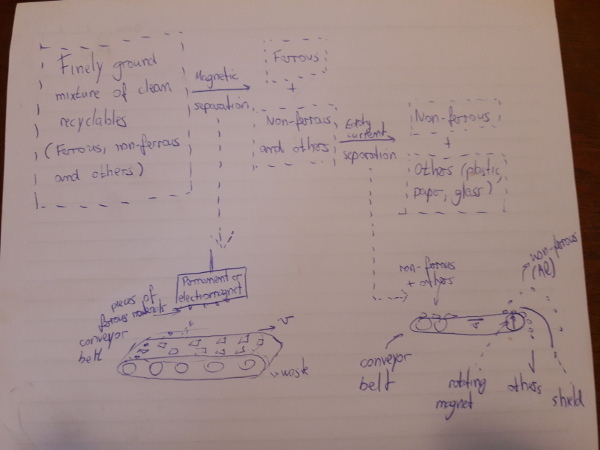 Finely ground
mixture of clean
recyclables
(Ferrous, non-ferrous
and others)
Magnetic
separation
Ferrous
+
Non-ferrous
and others
Eddy
current
separation
Non-ferrous
+
Others (plastic,
paper, glass)
Permanent or
electromagnet
pieces of
ferrous materials
conveyor
belt
v
waste
non-ferrous
+ others
conveyor
belt
v
rotating
magnet
others
shield
non-ferrous
(Al)